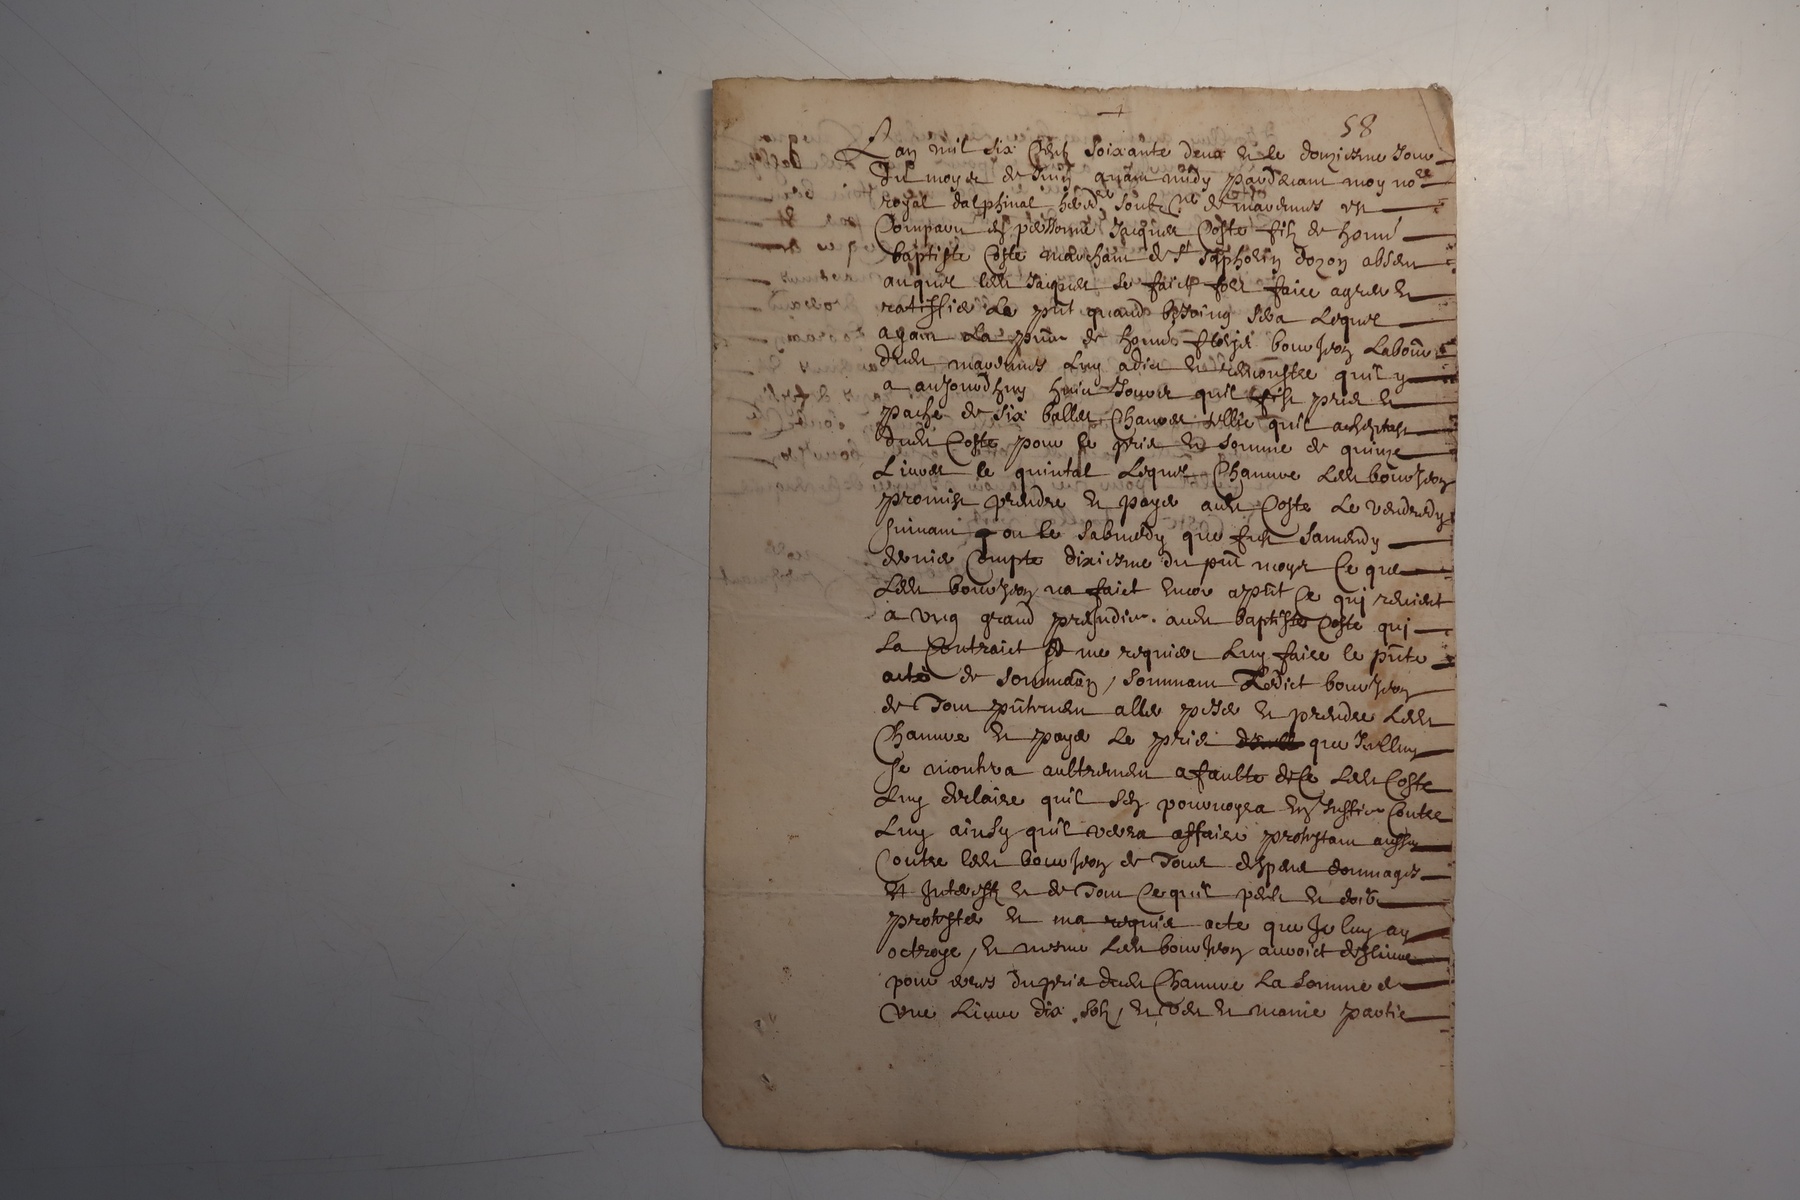 58
Lan mil six Centz soixante deux et le douziesme Jour
du moys de Juin avant midy pardevant moy no.re
royal dalphinal hered.re soubz.ne de est
Comparu en personne Jacques Coste filz de hon.
baptiste Coste marchant de St saphorin dozon absent
auquel led Jaques se faict fort faire agreer et
ratiffier Le pnt quand besoing sera Lequel
ayant La pnce de honn. bourjon Labour
dud Luy a dict et remonstre quil y
a aujourdhuy huict Jours quil fist pris et
pache de six balles Chanvre quil acheptast
dud Coste pour le pris et somme de quinze
Livres le quintal Lequel Chanvre Led bourjon
promist prendre et payer aud Coste Le vendredy
suivant ou le sabmedy que fust samendy
dernier Compte dixiesme du pnt moys Ce que
Led bourjon na faict encor apnt Ce qui revient
a ung grand prejudice aud baptiste Coste qui
La Contraict me requier Luy faire le pnte
acte de sommaon, sommant Ledict bourjon
de Tout pntement aller peser et prendre Led
Chanvre et payer Le pris que Icelluy
se montera aultrement a faulte de Ce Led Coste
Luy declaire quil sen pourvoyra en Justice Contre
Luy ainsy quil verra affaire protestant aussy
Contre led bourjon de Tous despens dommages
et Interestz et de Tout Ce quil peult et doibt
protester et ma requis acte que Je luy ay
octroye, et mesme Led bourjon avoict deslivre
pour erres du pris dud Chanvre La Somme de
une Livre dix solz, et en partie